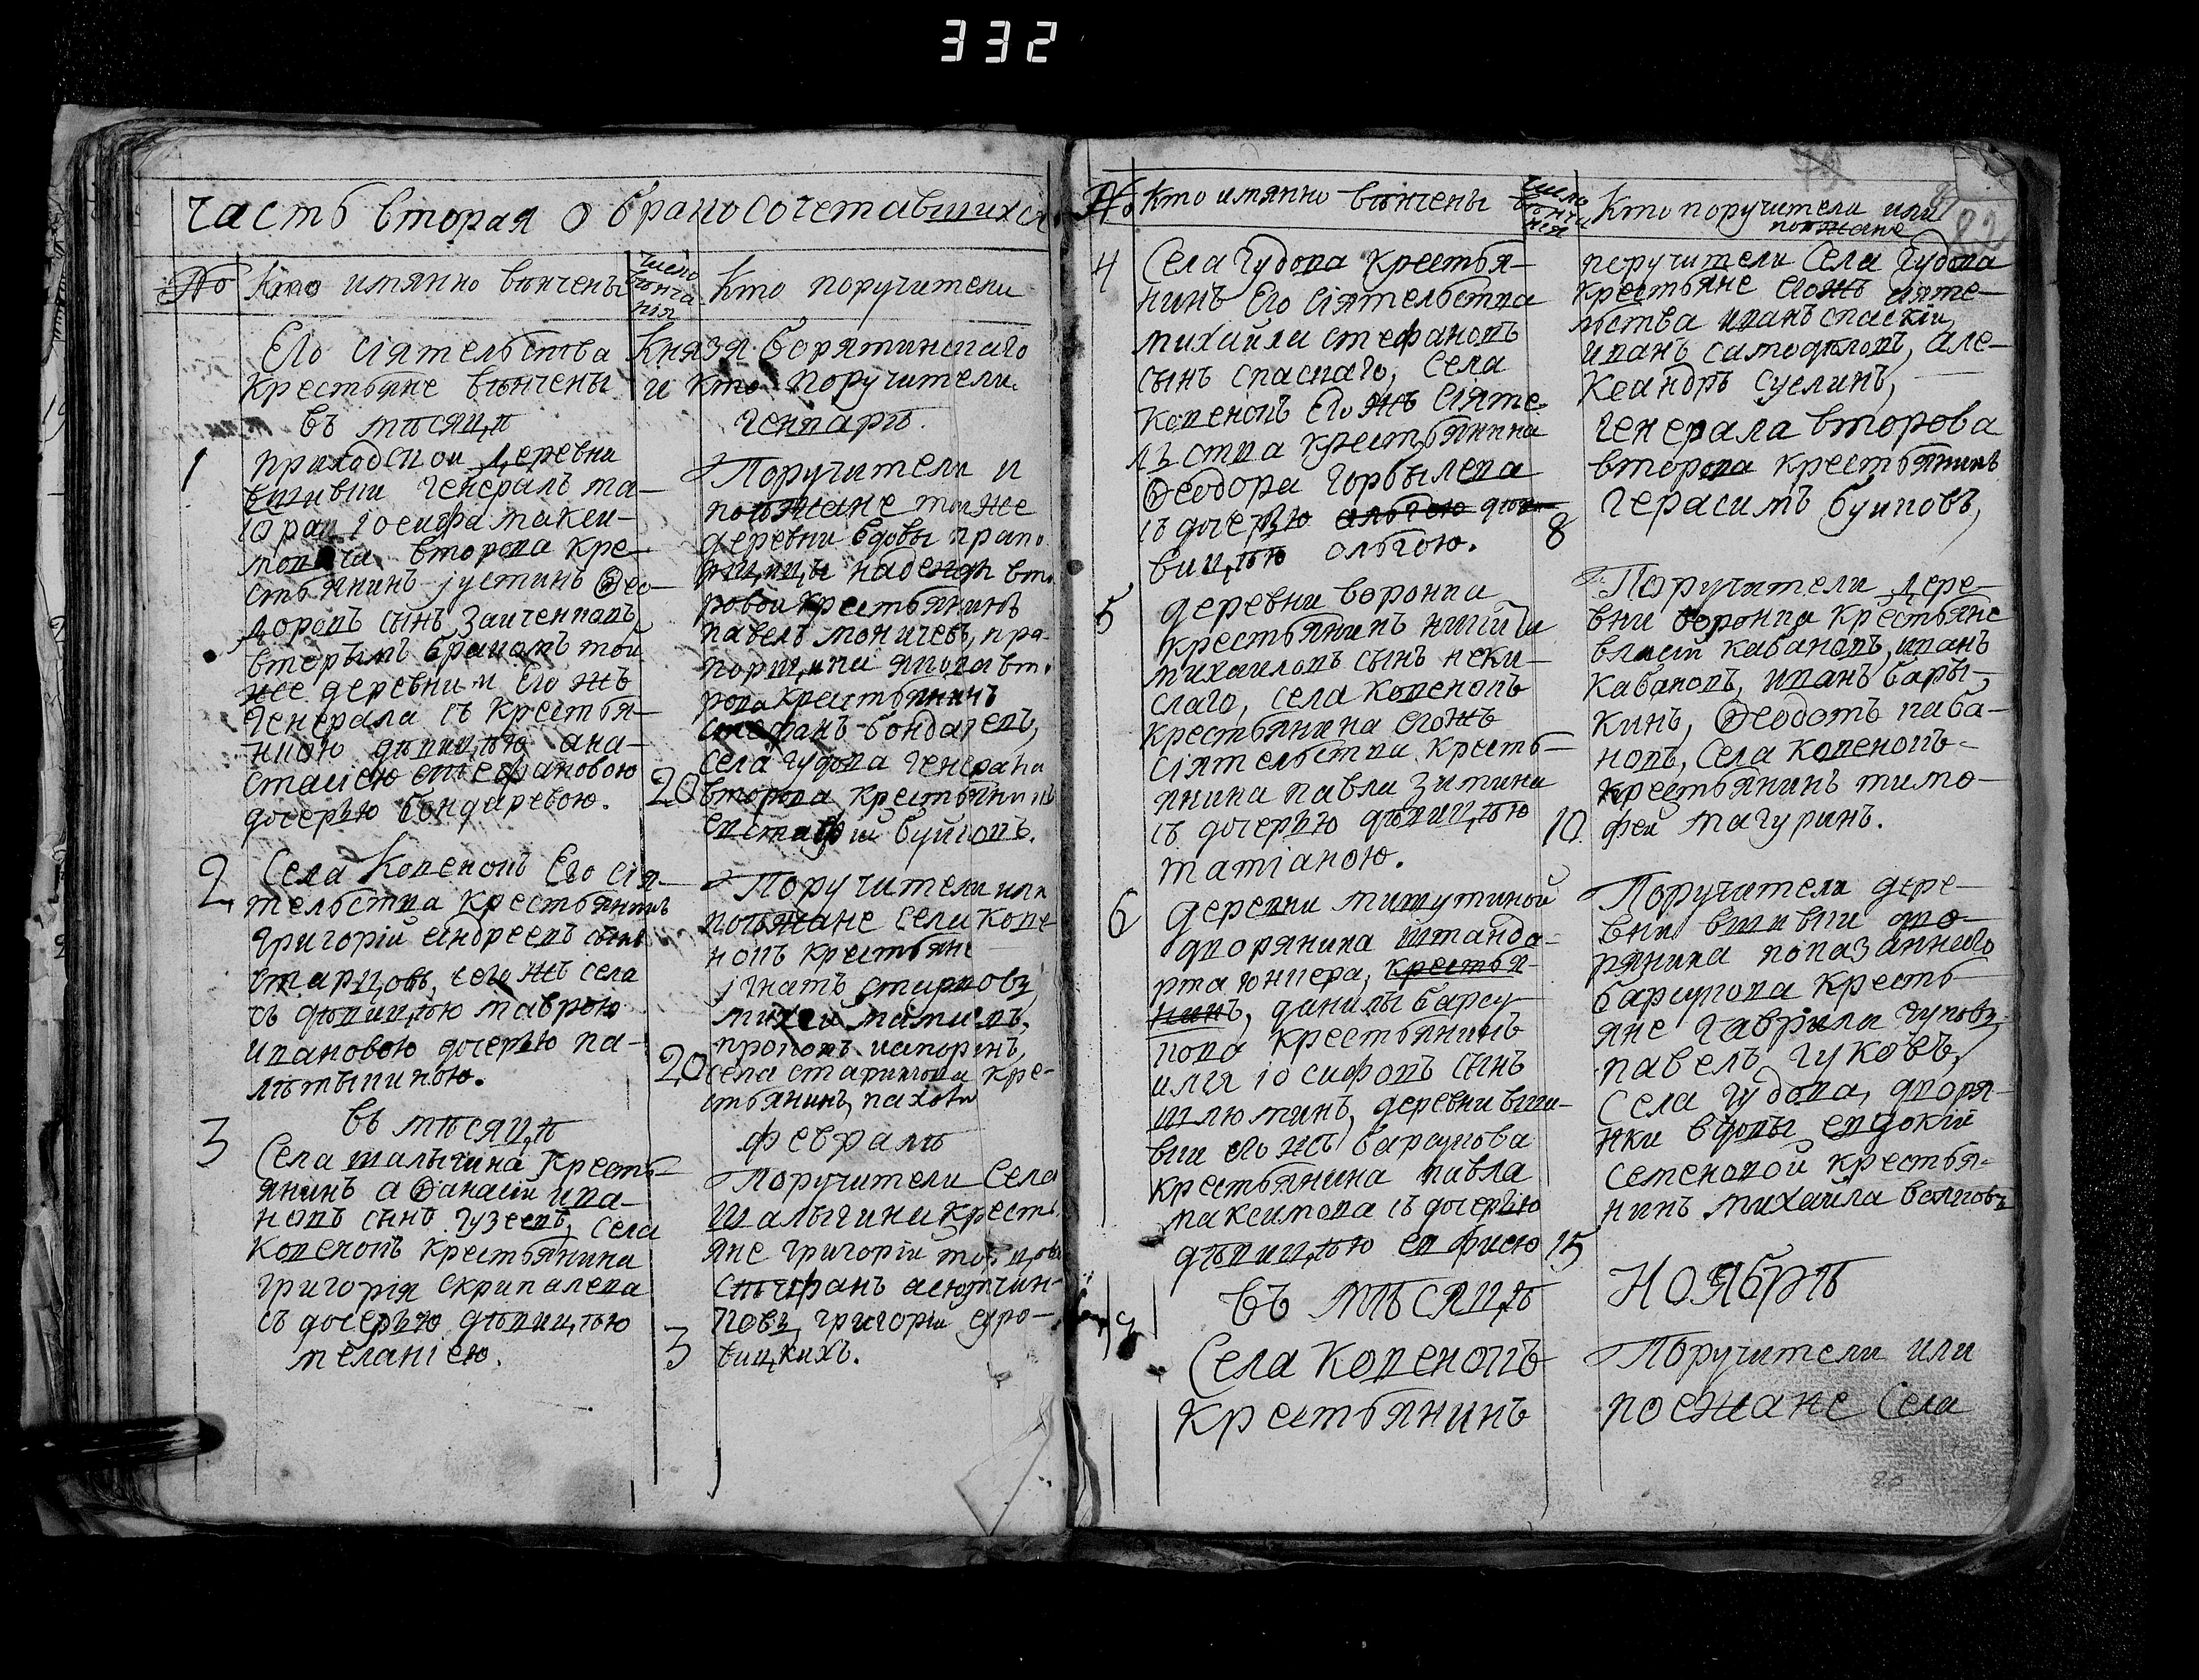 332
часть вторая о бракосочетавшихся
№ Кто имянно вѣнчены число вѣнча нія Кто поручители
Его сіятельства Князя борятинскаго
крестьяне вѣнчены и кто поручители.
въ мѣсяцѣ генварѣ.
1
приходской деревни
вшивки генералъ ма-
іора Іосифа макси-
мовича второва кре-
стьянинъ іустинъ Ѳео-
доровъ сынъ Заиченковъ
вторымъ бракомъ той
же деревни и его жъ
генерала съ крестья-
нкою дѣвицѣю ана-
стасіею стефановою
дочерѣю бондаревою.
20
Поручители и
поѣжане тояже
деревни вдовы прапо
рщицы надежды вто
ровой крестьянинъ
павелъ моничевъ, пра-
порщика якова вто
рова крестьянинъ
стефанъ бондаревъ,
села гудова генерала
второва крестьянинъ
евстафій буйновъ.
2
Села Ковенокъ Его сія-
тельства крестьянинъ
григорій андреевъ сынъ
старцовъ, его жъ села
съ дѣвицѣю маврою
ивановою дочерѣю
20
Поручители или
поѣжане села Кове
нокъ крестьяне
игнатъ
села кре-
стьянинъ
въ мѣсяцѣ февралѣ
3
Села шалыгина кресть-
янинъ аѲанасій ива-
новъ сынъ гузеевъ, села
Ковенокъ крестьянина
григорія скрипалева
съ дочерѣю дѣвицѣю
меланіею.
3
Поручители села
шалыгина кресть
яне григорій
григорій
№ Кто имянно вѣнчены число вѣнча нія Кто поручители или поѣжане
82
4
Села гудова крестья-
нинъ Его сіятельства
михайла стефановъ
сынъ спаскаго, села
ковенокъ Его жъ сіяте-
льства крестьянина
Ѳеодора горбылева
съ дочерѣю альгою дѣ-
вицѣю ольгою.
8
поручители села гудова
крестьяне егожъ сіяте-
льства иванъ спаскій,
иванъ самодѣловъ, але-
ксандръ суслинъ,
генерала второва
второва крестьянинъ
герасимъ буиновъ,
5
деревни воронка
крестьянинъ никита
михаиловъ сынъ неки-
слаго, села ковенокъ
крестьянина егожъ
сіятельства кресть-
янина павла зимина
съ дочерѣю дѣвицѣю
татіаною.
10
Поручители дере-
вни воронка крестьяне
власій кабановъ, иванъ
кабановъ, иванъ бары-
кинъ, Ѳеодотъ каба-
новъ, села ковенокъ
крестьянинъ тимо-
фей магуринъ.
6
деревни мишутиной
дворянина штанда-
рта юнкера, крестья-
нинъ, данилы барсу-
кова крестьянинъ
илія іосифовъ сынъ
шлюминъ, деревни вши-
вки его жъ барсукова
крестьянина павла
максимова съ дочерѣю
дѣвицѣю евфисею
15
Поручители дере-
вни вшивки дво-
рянина показаннаго
барсукова кресть-
яне гаврила гуковъ,
павелъ гуковъ,
села гудова, дворя-
нки вдовы евдокіи
семеновой крестья-
нинъ михайла волковъ
въ мѣсяцѣ ноябрѣ
Села ковенокъ
крестьянинъ
Поручители или
поежане села